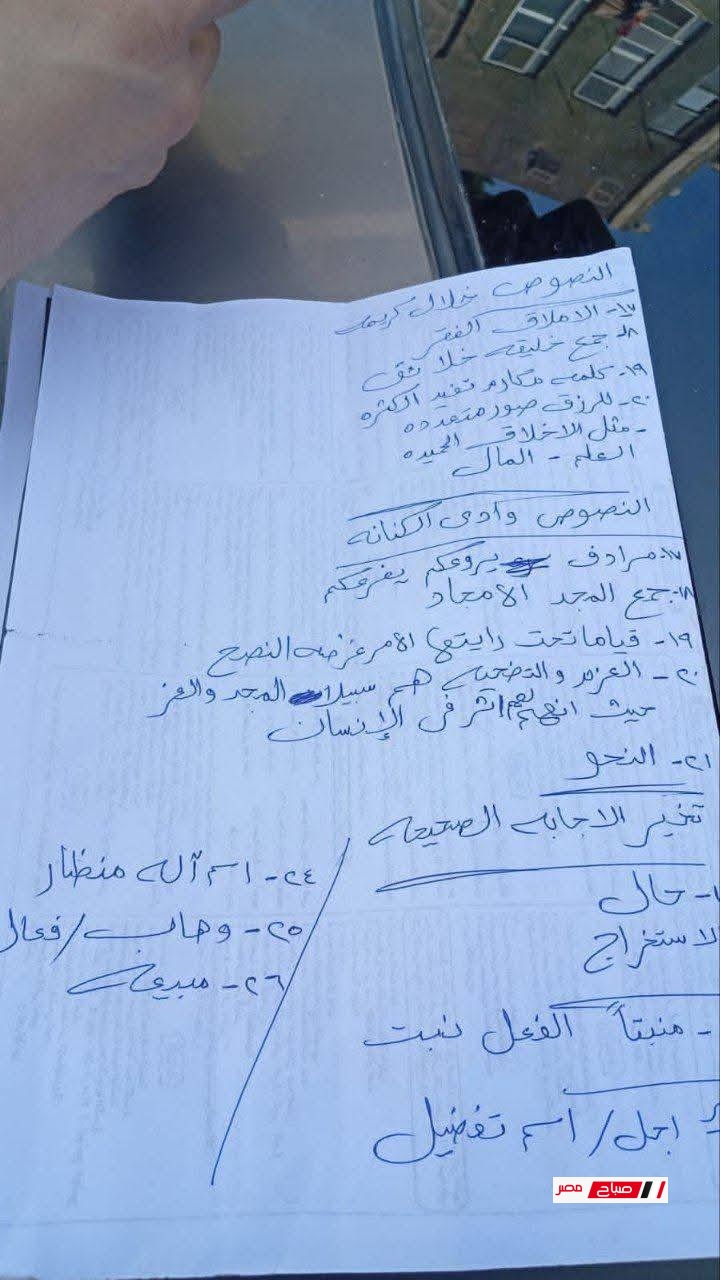 النصوص خلال كريمه
١٧- الاملاق الفقر
١٨- جمع خليقه خلائق
١٩- كلمه مكارم تفيد الكثره
٢٠- للرزق صور متعدده
- مثل الاخلاق الحميده
العلم - المال
النصوص وادى الكنانه
١٧- مرادف يروعكم يفزعكم
١٨- جمع المجد الامجاد
١٩- قياما تحت رايتها الامر غرضه النصح
٢٠- العزم والتضحيه هم سبيلا المجد والعز
حيث انهم لهم اثر فى الإنسان
٢١- النحو
تخير الاجابه الصحيحه
- حال
الاستخراج
- منبتاً الفعل نبت
اجمل / اسم تفضيل
٢٤- اسم آله منظار
٢٥- وهاب / فعال
٢٦- مبيعه
صباح مصر